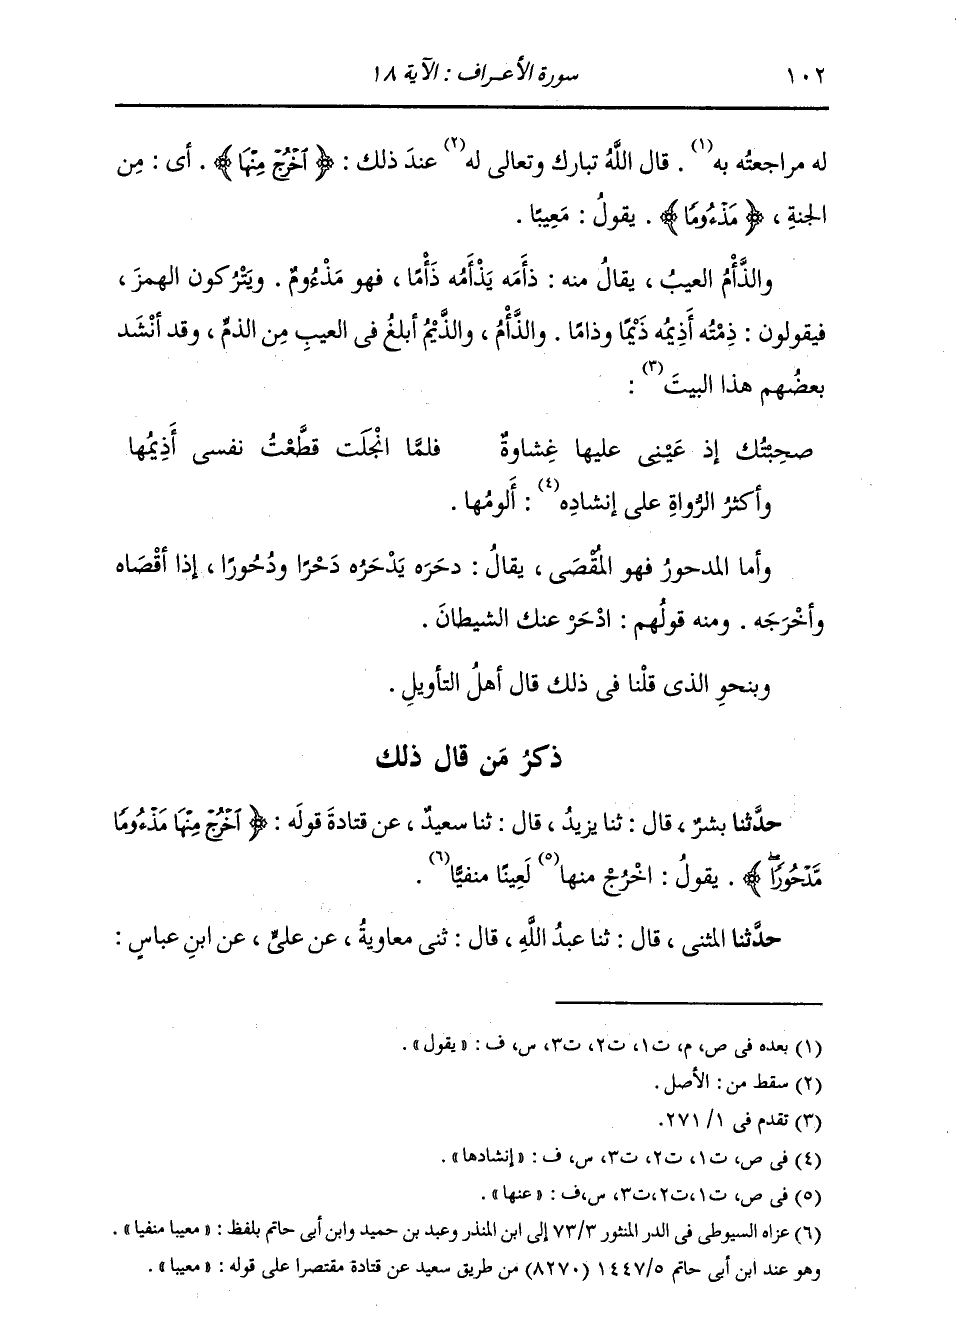 ١٠٢ سورة الأعراف : الآية ١٨
له مراجعتُه به(١) . قال اللَّهُ تبارك وتعالى له(٢) عندَ ذلك : ﴿ ٱخْرُجْ مِنْهَا ﴾ . أى : مِن
الجنةِ ، ﴿ مَذْءُومًا ﴾ . يقولُ : مَعِيبًا .
والذَّأْمُ العيبُ ، يقالُ منه : ذأَمَه يَذْأَمُه ذَأْمًا ، فهو مَذْءُومٌ . ويَتْرُكون الهمزَ ،
فيقولون : ذِمْتُه أَذِيمُه ذَيْمًا وذامًا . والذَّأْمُ ، والذَّيْمُ أبلغُ فى العيبِ مِن الذمِّ ، وقد أنْشَد
بعضُهم هذا البيتَ(٣) :
صحِبْتُك إذ عَيْنِى عليها غِشاوةٌ فلمَّا انْجَلَت قطَّعْتُ نفسى أَذِيمُها
وأكثرُ الرُّواةِ على إنشادِه(٤) : أَلومُها .
وأما المدحورُ فهو المُقْصَى ، يقالُ : دحَرَه يَدْحَرُه دَحْرًا ودُحُورًا ، إذا أقْصَاه
وأخْرَجَه . ومنه قولُهم : ادْحَرْ عنك الشيطانَ .
وبنحوِ الذى قلْنا فى ذلك قال أهلُ التأويلِ .
ذكرُ مَن قال ذلك
حدَّثنا بشرٌ ، قال : ثنا يزيدُ ، قال : ثنا سعيدٌ ، عن قتادةَ قولَه : ﴿ ٱخْرُجْ مِنْهَا مَذْءُومًا
مَّدْحُورًاۖ ﴾ . يقولُ : اخْرُجْ منها(٥) لَعِينًا منفيًّا(٦) .
حدَّثنا المثنى ، قال : ثنا عبدُ اللَّهِ ، قال : ثنى معاويةُ ، عن علىٍّ ، عن ابنِ عباسٍ :
(١) بعده فى ص، م، ت١، ت٢، ت٣، س، ف : « يقول » .
(٢) سقط من : الأصل .
(٣) تقدم فى ١/ ٢٧١.
(٤) فى ص، ت١، ت٢، ت٣، س، ف : « إنشادها » .
(٥) فى ص، ت١،ت٢،ت٣، س،ف : « عنها » .
(٦) عزاه السيوطى فى الدر المنثور ٧٣/٣ إلى ابن المنذر وعبد بن حميد وابن أبى حاتم بلفظ : « معيبا منفيا » .
وهو عند ابن أبى حاتم ١٤٤٧/٥ (٨٢٧٠) من طريق سعيد عن قتادة مقتصرا على قوله : « معيبا » .